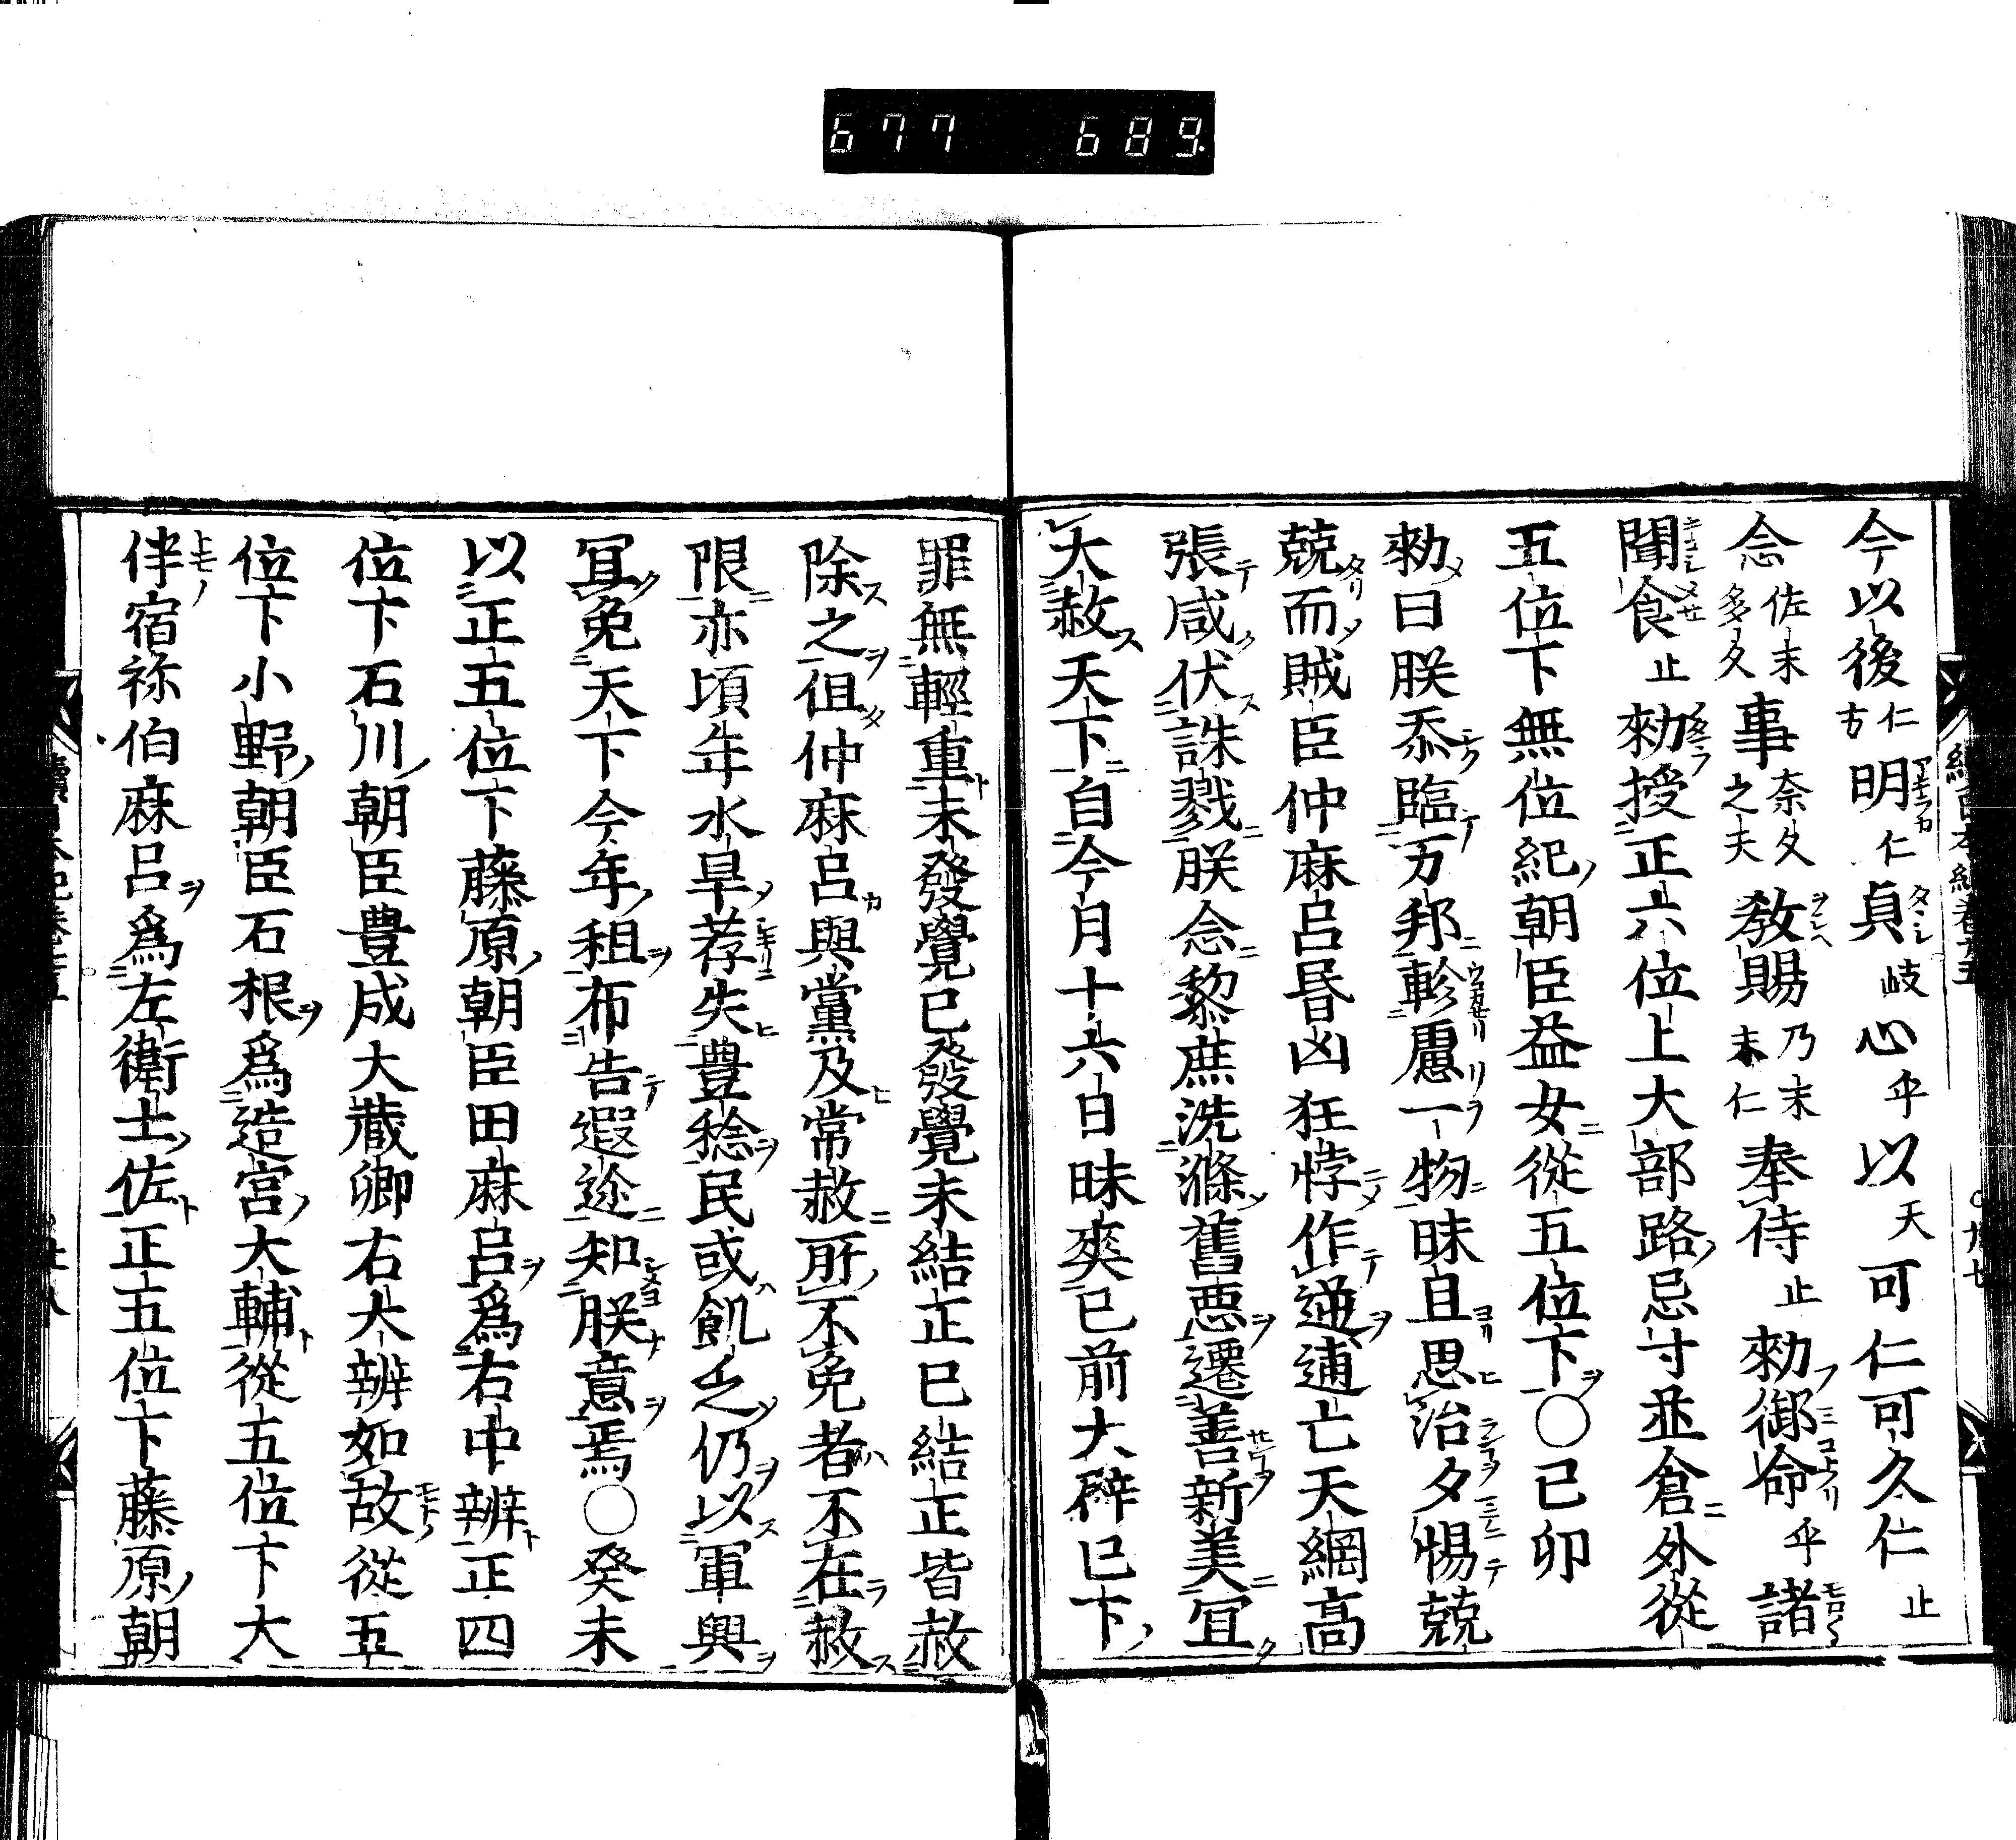 677 689
今以後仁方明仁貞岐心乎以天可仁可久仁止
念佐末多久事奈久之夫教賜乃末末仁奉侍止勑御命乎諸
聞食止勑授正六位上大部路忌寸並倉外從
五位下無位紀朝臣益女從五位下○己卯
勑曰朕忝臨万邦軫慮一物昧旦思治夕惕兢
兢而賊臣仲麻呂昬凶狂悖作逆逋亡天網高
張咸伏誅戮朕念黎庶洗滌舊惡遷善新美宜
大赦天下自今月十六日昧爽已前大辟已下
罪無輕重未發覺已發覺未結正已結正皆赦
除之徂仲麻呂與黨及常赦所不免者不在赦
限亦頃年水旱荐失豊稔民或飢乏仍以軍興
冝免天下今年租布告遐迩知朕意焉○癸未
以正五位下藤原朝臣田麻呂爲右中辨正四
位下石川朝臣豊成大藏卿右大辨如故從五
位下小野朝臣石根爲造宮大輔從五位下大
伴宿祢伯麻呂爲左衛士佐正五位下藤原朝